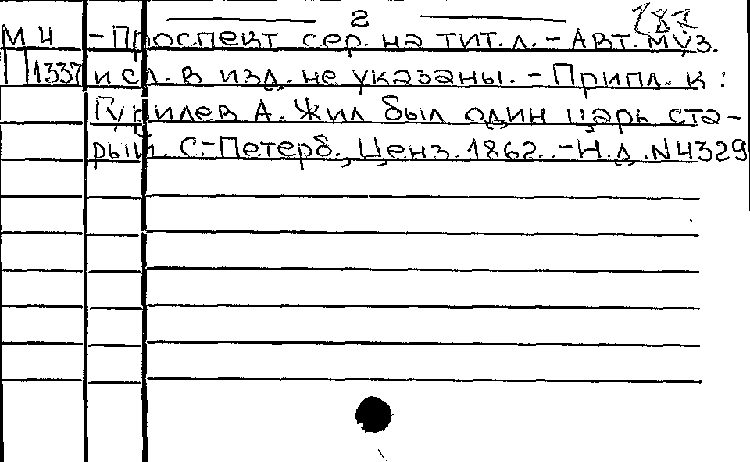 2 282
М Ч - Проспект сер. на тит. л. - Авт. муз.
П 1337 и сл. в изд. не указаны. - Припл. к:
Гурилев А. Жил был один царь ста-
рый. С.-Петерб., Ценз. 1862. - Н.д. N 4329